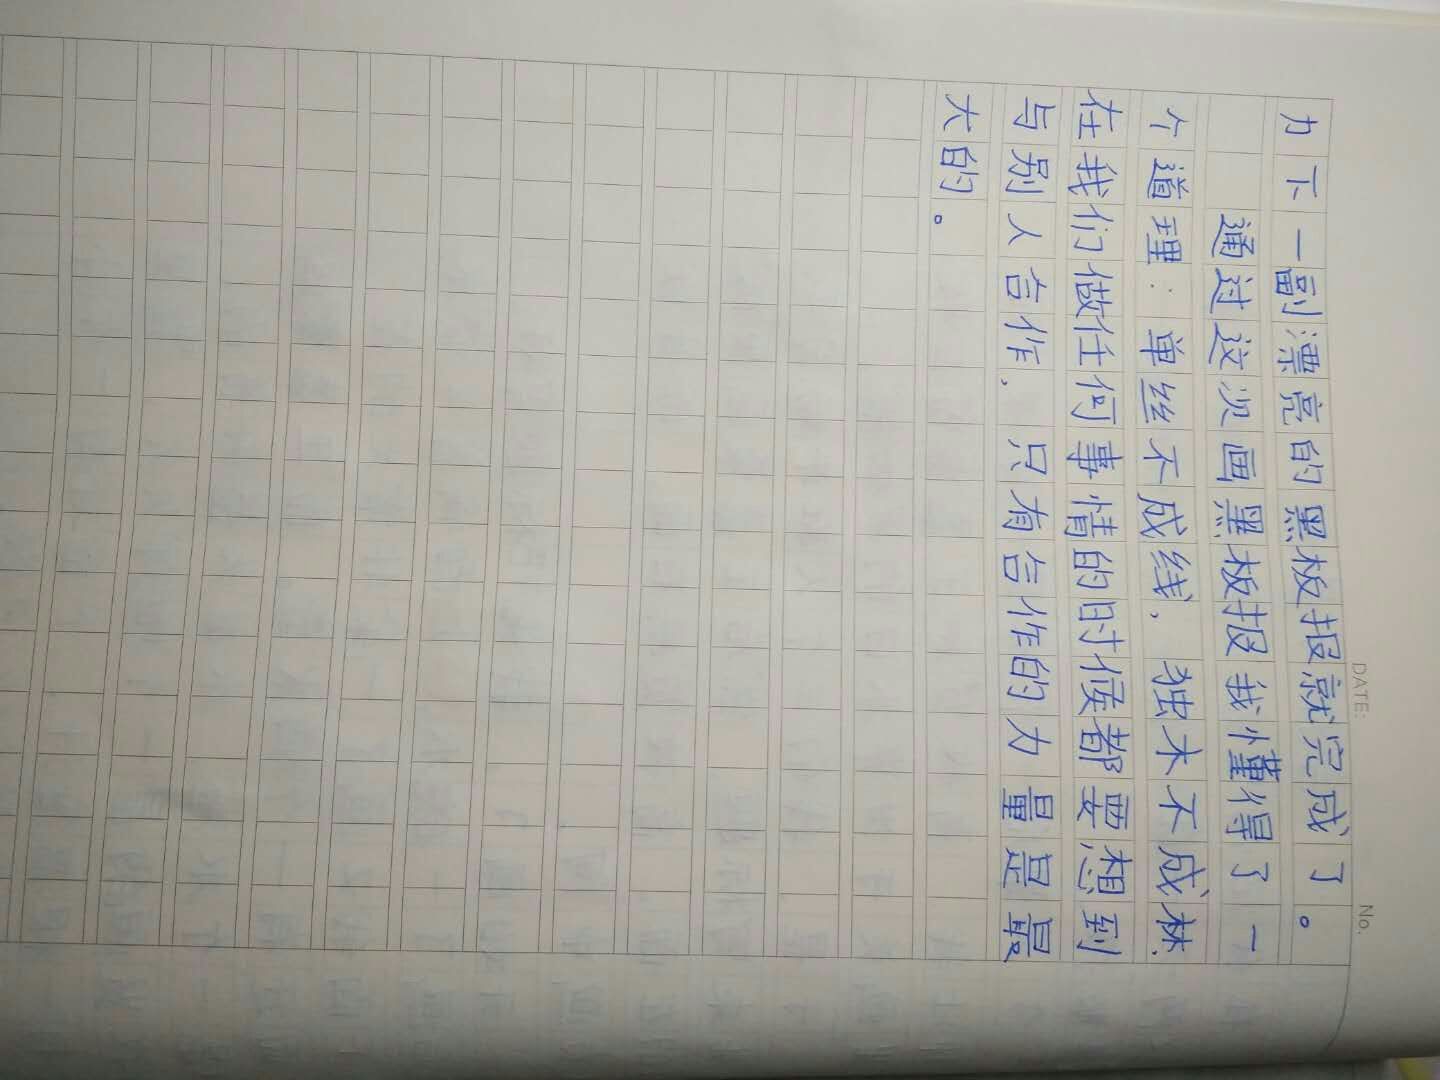 DATE:
No.
力下一副漂亮的黑板报就完成了。
通过这次画黑板报我懂得了一
个道理：单丝不成线，独木不成林.
在我们做任何事情的时候都要想到
与别人合作，只有合作的力量是最
大的。